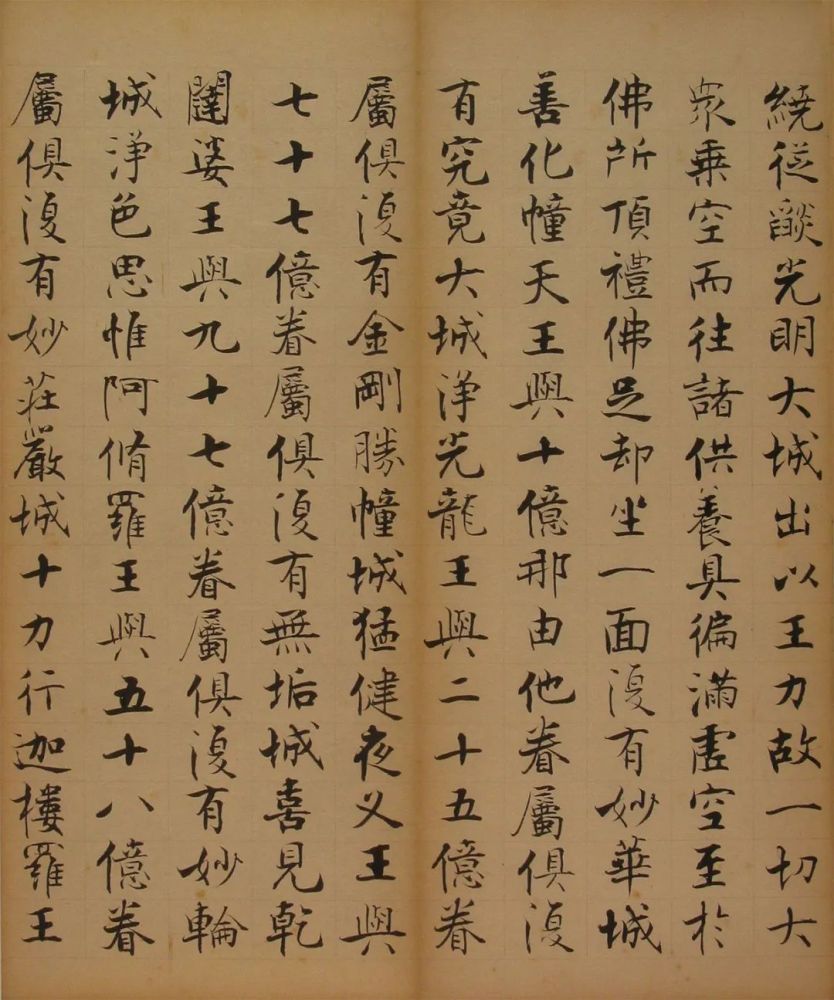 繞從燄光明大城出以王力故一切大
衆乗空而往諸供養具徧滿虛空至於
佛所頂禮佛足却坐一面復有妙華城
善化幢天王與十億那由他眷屬俱復
有究竟大城淨光龍王與二十五億眷
屬俱復有金剛勝幢城猛健夜叉王與
七十七億眷屬俱復有無垢城喜見乾
闥婆王與九十七億眷屬俱復有妙輪
城淨色思惟阿脩羅王與五十八億眷
屬俱復有妙莊嚴城十力行迦樓羅王